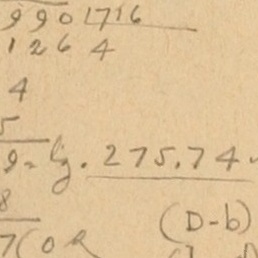 9901716
1264
4
5
9 = lg. 275.74
8
(D-b)
7(0